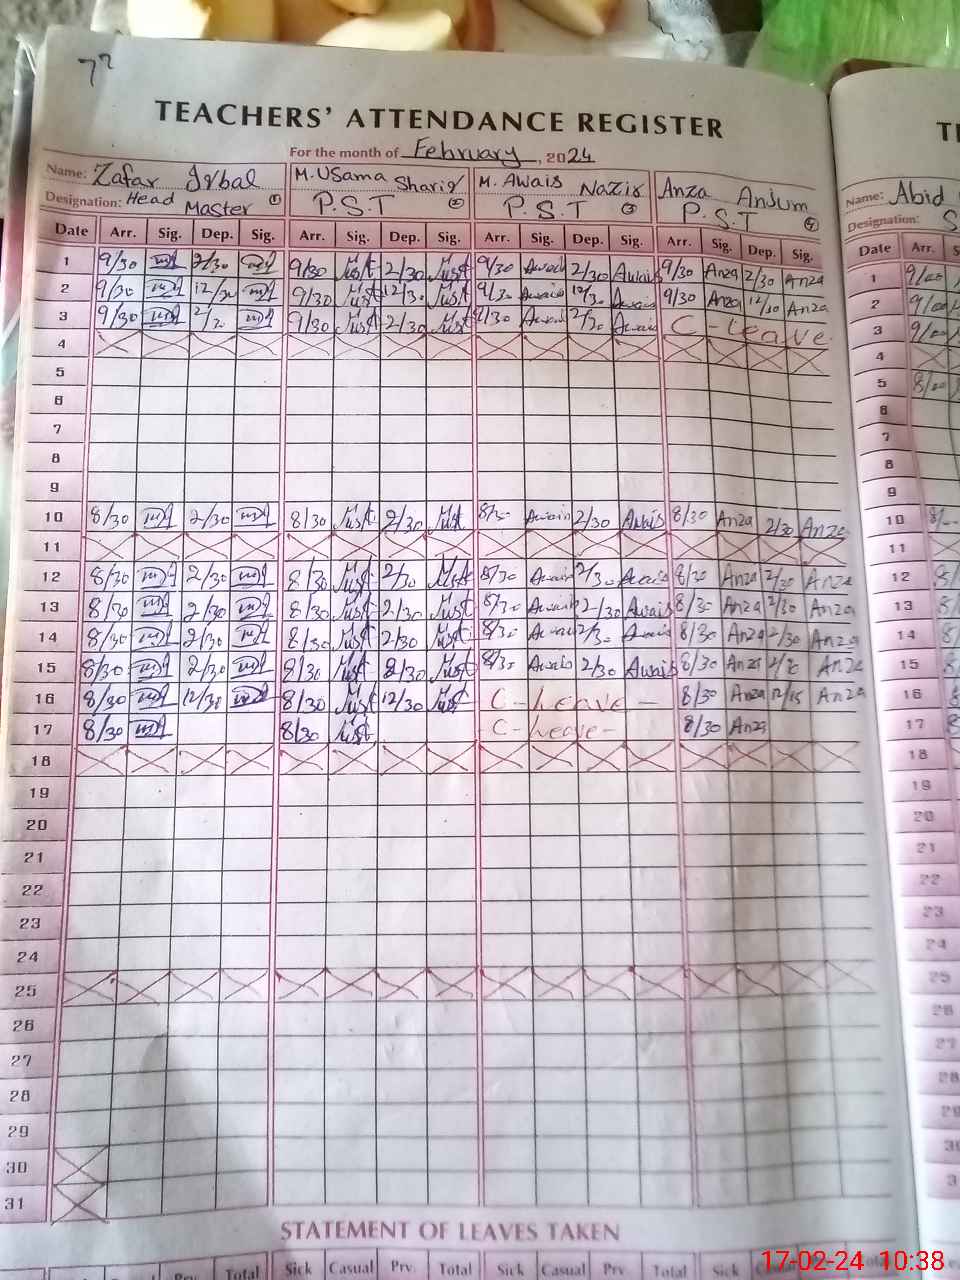 77
TEACHERS' ATTENDANCE REGISTER
For the month of February, 2024
Name: Zafar Iqbal M. Usama Sharif M. Awais Nazir Anza Anjum Name: Abid
Designation: Head Master ① P.S.T ② P.S.T ③ P.S.T ④ Designation:
Date Arr. Sig. Dep. Sig. Arr. Sig. Dep. Sig. Arr. Sig. Dep. Sig. Arr. Sig. Dep. Sig. Date Arr.
1 9/30 2/30 9/30 2/30 9/30 Awais 2/30 Awais 9/30 Anza 2/30 Anza 1 9/00
2 9/30 12/30 9/30 12/30 9/30 Awais 12/30 Awais 9/30 Anza 12/30 Anza 2 9/00
3 9/30 2/30 9/30 2/30 9/30 Awais 2/30 Awais C-Leave 3 9/00
4 4
5 5 8/00
6 6
7 7
8 8
9 9
10 8/30 2/30 8/30 2/30 8/30 Awais 2/30 Awais 8/30 Anza 2/30 Anza 10
11 11
12 8/30 2/30 8/30 2/30 8/30 Awais 2/30 Awais 8/30 Anza 2/30 Anza 12
13 8/30 2/30 8/30 2/30 8/30 Awais 2/30 Awais 8/30 Anza 2/30 Anza 13
14 8/30 2/30 8/30 2/30 8/30 Awais 2/30 Awais 8/30 Anza 2/30 Anza 14
15 8/30 2/30 8/30 2/30 8/30 Awais 2/30 Awais 8/30 Anza Anza 15
16 8/30 12/30 8/30 12/30 C-Leave - 8/30 Anza 12/15 Anza 16
17 8/30 8/30 - C-Leave - 8/30 Anza 17
18 18
19 19
20 20
21 21
22 22
23 23
24 24
25 25
26 26
27 27
28 28
29 29
30
31
STATEMENT OF LEAVES TAKEN
Prv. Total Sick Casual Prv. Total Sick Casual Prv. Total Sick
17-02-24 10:38